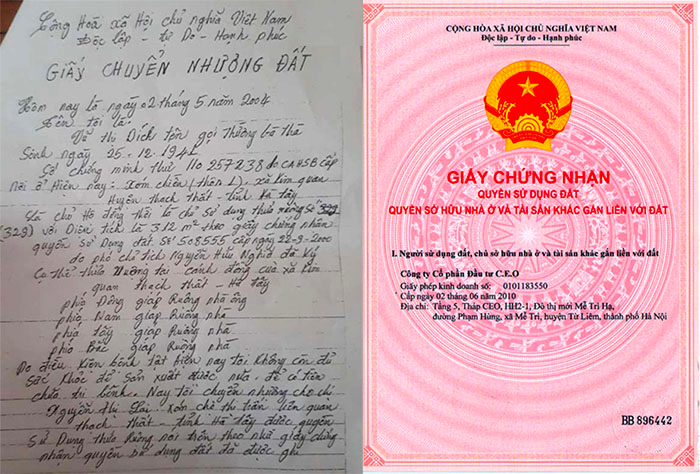 Cộng Hoà xã Hội chủ nghĩa Việt Nam
Độc lập - Tự Do - Hạnh phúc
GIẤY CHUYỂN NHƯỢNG ĐẤT
Hôm nay là ngày 02 tháng 5 năm 2004
Tên tôi là:
Vũ thị Dích tên gọi thường bà thà
Sinh ngày 25-12-194
Số chứng minh thư 110 257 238 do CAHSB cấp
Nơi ở Hiện nay: Xóm chiến (thôn 1), xã kim quan
Huyện thạch thất - tỉnh Hà tây
Là chủ Hộ đồng thời là chủ Sử dụng thửa ruộng Số 329
(329) với Diện tích là 312 m² theo giấy chứng nhận
quyền sử Dụng đất. Số 508555 cấp ngày 22-9-2000
do phó chủ tịch Nguyễn Hữu Nghĩa đã ký
Cụ thể thửa Ruộng tại cánh đồng của xã kim
quan thạch thất - Hà tây
phía Đông giáp Ruộng nhà ông
phía Nam giáp Ruộng nhà
phía tây giáp Ruộng nhà
phía Bắc giáp Ruộng nhà
Do điều kiện bệnh tật hiện nay tôi không còn đủ
Sức khỏe để sản xuất được nữa, để có tiền
chữa trị bệnh. Nay tôi chuyển nhượng cho chị
Nguyễn thị Lai, Xóm chề thị trấn liên quan
thạch thất - tỉnh Hà tây được quyền
Sử Dụng thửa Ruộng nói trên theo như giấy chứng
nhận quyền sử dụng đất đã được ghi
CỘNG HÒA XÃ HỘI CHỦ NGHĨA VIỆT NAM
Độc lập - Tự do - Hạnh phúc
GIẤY CHỨNG NHẬN
QUYỀN SỬ DỤNG ĐẤT
QUYỀN SỞ HỮU NHÀ Ở VÀ TÀI SẢN KHÁC GẮN LIỀN VỚI ĐẤT
I. Người sử dụng đất, chủ sở hữu nhà ở và tài sản khác gắn liền với đất
Công ty Cổ phần Đầu tư C.E.O
Giấy phép kinh doanh số: 0101183550
Cấp ngày 02 tháng 06 năm 2010
Địa chỉ: Tầng 5, Tháp CEO, HH2-1, Đô thị mới Mễ Trì Hạ,
đường Phạm Hùng, xã Mễ Trì, huyện Từ Liêm, thành phố Hà Nội
BB 896442